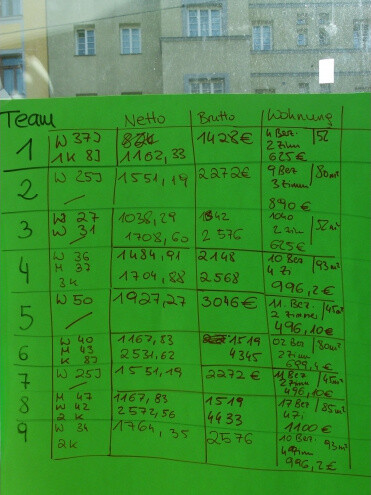 Team Netto Brutto Wohnung
1 W 37J 1428€ 4 Bez. 52
1K 8J 1162,33 2 Zim
625€
2 W 25J 1551,19 2272€ 9 Bez 80m²
3 zimm
890€
3 W 27 1038,29 1040 52m²
W 31 1708,60 2576 2 Zim
625€
4 W 36 1484,91 2148 10 Bez 93m²
M 37 1704,88 2568 4 Zi
3K 996,2€
5 W 50 1927,27 3046€ 11. Bez. 45m²
2 Zimmer
496,10€
6 W 40 1167,83 1519 02 Bez 80m²
M 43 2531,62 4345 2 Zimm
K 8J
7 W 25J 1551,19 2272€ 11 Bez 45m²
2 Zimm
496,10€
8 M 47 1167,83 1519 17 Bez 85m²
W 42 2572,56 4433 4 Zi
2K 1100€
9 W 34 1764,35 2576 10 Bez. 93m²
2K
996,2€